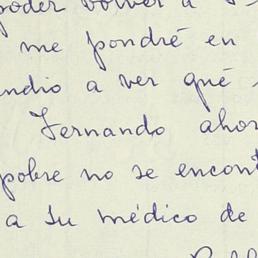 poder volver a
me pondré en
ndio a ver qué
Fernando ahor
pobre no se encont
a su médico de